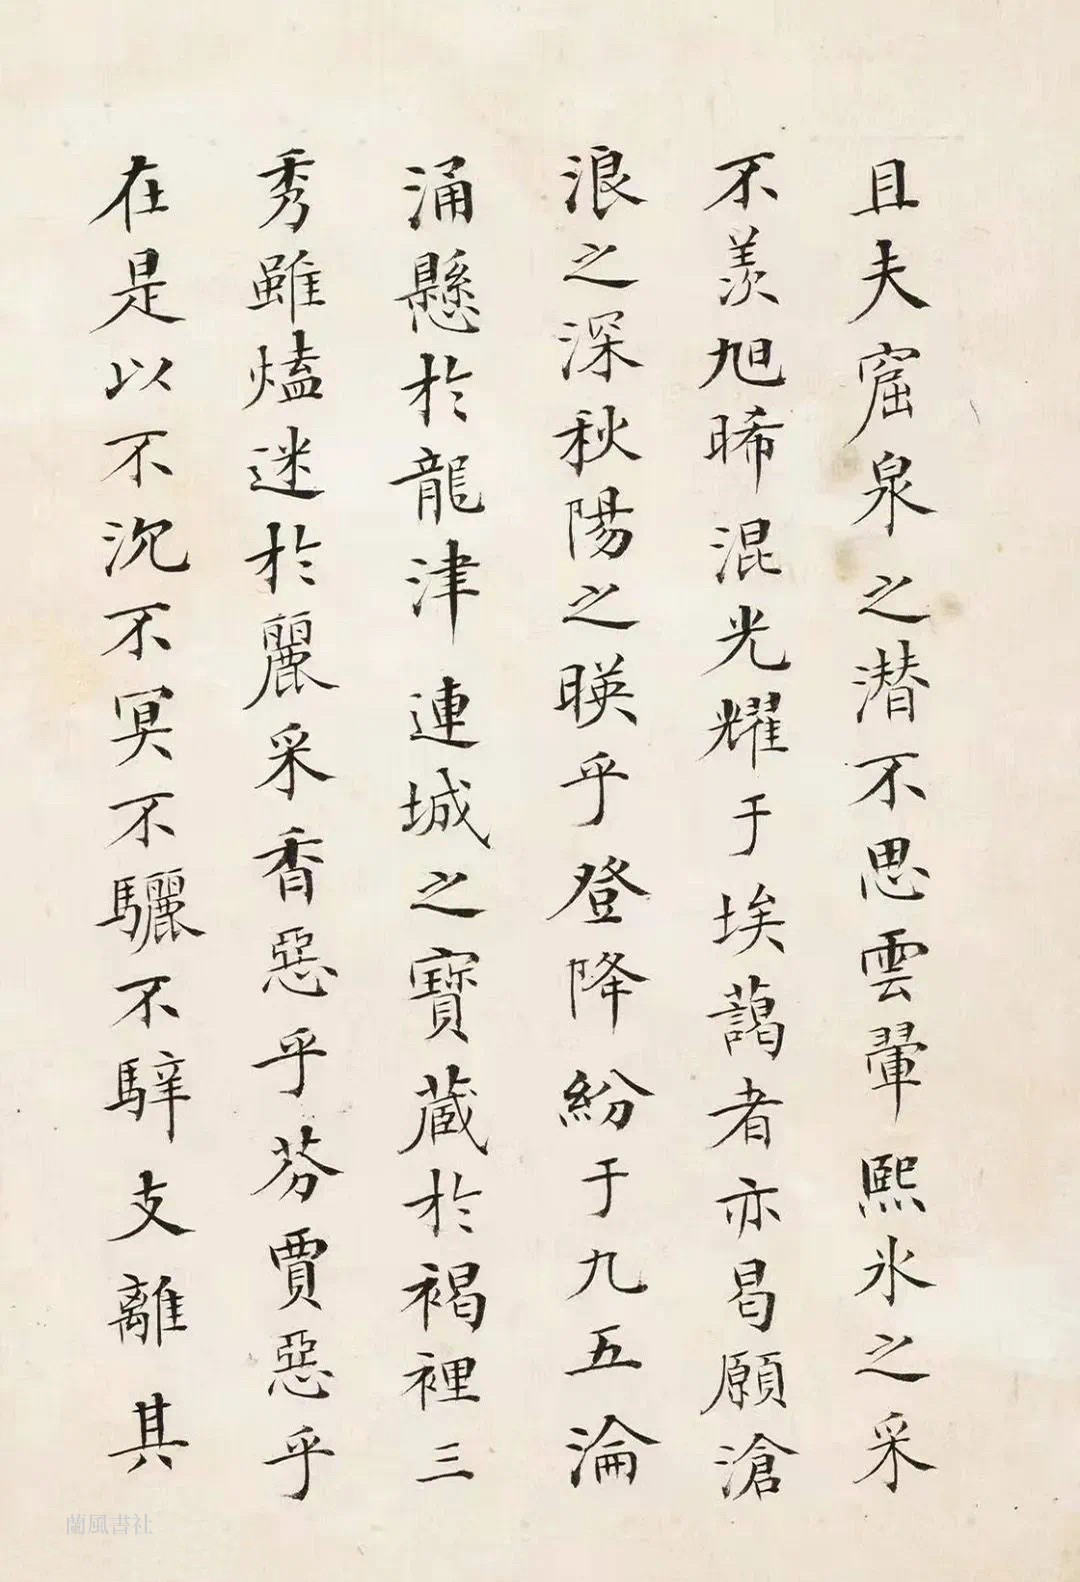 且夫窟泉之潜不思雲翬熙氷之采
不羨旭晞混光耀于埃藹者亦曷願滄
浪之深秋陽之暎乎登降紛于九五淪
涌懸於龍津連城之寶蔵於褐裡三
秀雖𤍠迷於麗采香惡乎芬賈惡乎
在是以不沉不冥不驪不騂支離其
蘭風書社